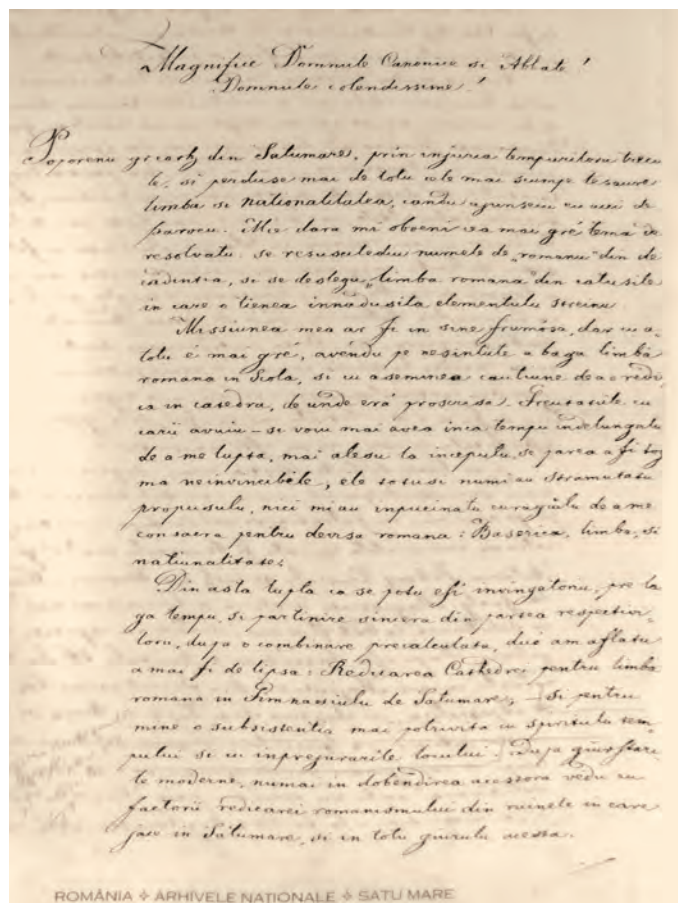 Magnifice Domnule Canonice si Abbate!
Domnule colendissime!
Poporenu gr. cath. din Satumare, prin injuria tempurilora trecu
te, si perduse mai de totu cele mai scumpe tesaure
limba si nationalitatea, candu ajunseiu eu aici de
parocu. Mie dara mi obveni cea mai gré tema de
resolvatu: se resusulediu numele de „romanu" din de
cadintia, si se deslegu „limba romana" din catusile
in care o tienea innadusita elementulu streinu
Missiunea mea ar fi in sine frumósa, dar cu a
totu é mai gré, avéndu pe nesintite a baga limba
romana in Scola, si cu aseminea cautiune de a o redi
ca in catedra, de unde erá proscrisa. Greutatile cu
carii avuiu – si voiu mai avea inca tempu indelungatu
de a me lupta, mai alesu la inceputu, se parea a fi toc
ma neinvincibile, ele totusi numi au stramutatu
propusulu, nici mi au inpucinatu curagiulu de a me
consacra pentru devisa romana: Baserica, limba, si
natiunalitate;
Din asta lupta ca se potu esi invingatoriu, pre la
ga tempu, si partinire sincera din partea respectivi
loru, dupa o combinare precalculata, due am aflatu
a mai fi de lipsa: Redicarea Cathedrei pentru limba
romana in Gimnasiulu de Satumare; – Si pentru
mine o subsistentia mai potrivita cu spiritulu tem
pului si cu inpregiurarile locului. Dupa
le moderne, numai in dobendirea acestora vedu eu
factorii redicarei romanismului din ruinele in care
jace in Satumare, si in totu giurulu acesta.
ROMÂNIA ❖ ARHIVELE NAȚIONALE ❖ SATU MARE